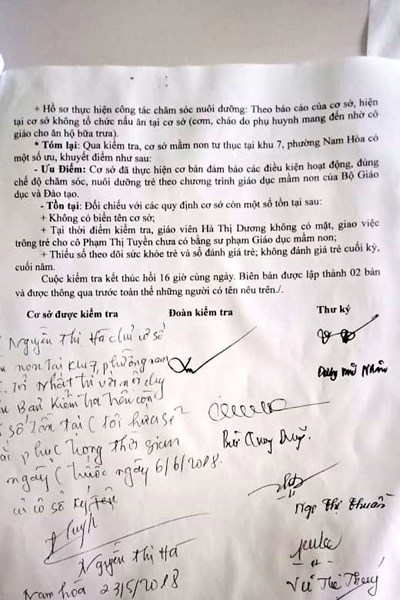 + Hồ sơ thực hiện công tác chăm sóc nuôi dưỡng: Theo báo cáo của cơ sở, hiện
tại cơ sở không tổ chức nấu ăn tại cơ sở (cơm, cháo do phụ huynh mang đến nhờ cô
giáo cho ăn hộ bữa trưa).
* Tóm lại: Qua kiểm tra, cơ sở mầm non tư thục tại khu 7, phường Nam Hòa có
một số ưu, khuyết điểm như sau:
- Ưu Điểm: Cơ sở đã thực hiện cơ bản đảm bảo các điều kiện hoạt động, đúng
chế độ chăm sóc, nuôi dưỡng trẻ theo chương trình giáo dục mầm non của Bộ Giáo
dục và Đào tạo.
- Tồn tại: Đối chiếu với các quy định cơ sở còn một số tồn tại sau:
+ Không có biển tên cơ sở;
+ Tại thời điểm kiểm tra, giáo viên Hà Thị Dương không có mặt, giao việc
trông trẻ cho cô Phạm Thị Tuyền chưa có bằng sư phạm Giáo dục mầm non;
+ Thiếu sổ theo dõi sức khỏe trẻ và sổ đánh giá trẻ; không đánh giá trẻ cuối kỳ,
cuối năm.
Cuộc kiểm tra kết thúc hồi 16 giờ cùng ngày. Biên bản được lập thành 02 bản
và được thông qua trước toàn thể những người có tên nêu trên./.
Cơ sở được kiểm tra Đoàn kiểm tra Thư ký
Nguyễn Thị Hà chủ cơ sở
non tại khu 7, phường nam
trí Nhất trí với nội dung
Bản kiểm tra nêu
số tồn tại (tôi hứa sẽ
phục trong thời gian
ngày (trước ngày 6/6/2018.
chủ cơ sở ký tên
Bùi Quang Duy.
Ngô Thị Thuần
Nguyễn Thị Hà
Nam hòa 23/5/2018
Vũ Thị